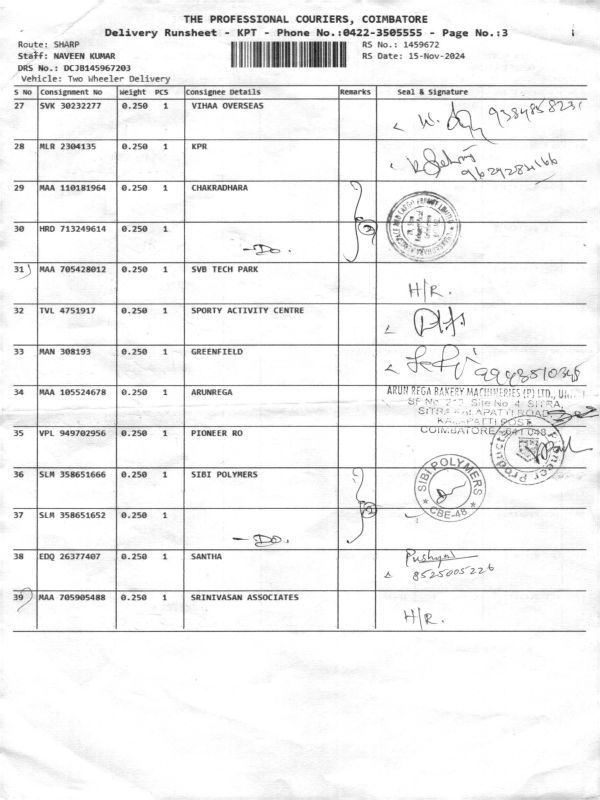 THE PROFESSIONAL COURIERS, COIMBATORE
Delivery Runsheet - KPT - Phone No.:0422-3505555 - Page No.:3
Route: SHARP
RS No.: 1459672
Staff: NAVEEN KUMAR
RS Date: 15-Nov-2024
DRS No.: DCJB145967203
Vehicle: Two Wheeler Delivery
S No Consignment No Weight PCS Consignee Details Remarks Seal & Signature
27 SVK 30232277 0.250 1 VIHAA OVERSEAS
28 MLR 2304135 0.250 1 KPR
29 MAA 110181964 0.250 1 CHAKRADHARA
30 HRD 713249614 0.250 1 -Do. 2
31) MAA 705428012 0.250 1 SVB TECH PARK H/R.
32 TVL 4751917 0.250 1 SPORTY ACTIVITY CENTRE
33 MAN 308193 0.250 1 GREENFIELD
34 MAA 105524678 0.250 1 ARUNREGA ARUN REGA BAKERY MACHINERIES (P) LTD.,
Site No 4, SITRA,
KALAPATTI ROAD
KALAPATTI POST
COIMBATORE - 641 048
35 VPL 949702956 0.250 1 PIONEER RO Pioneer Products
36 SLM 358651666 0.250 1 SIBI POLYMERS SIBI POLYMERS CBE-48
37 SLM 358651652 0.250 1 -Do. 2
38 EDQ 26377407 0.250 1 SANTHA 8525005226
39) MAA 705905488 0.250 1 SRINIVASAN ASSOCIATES H/R.